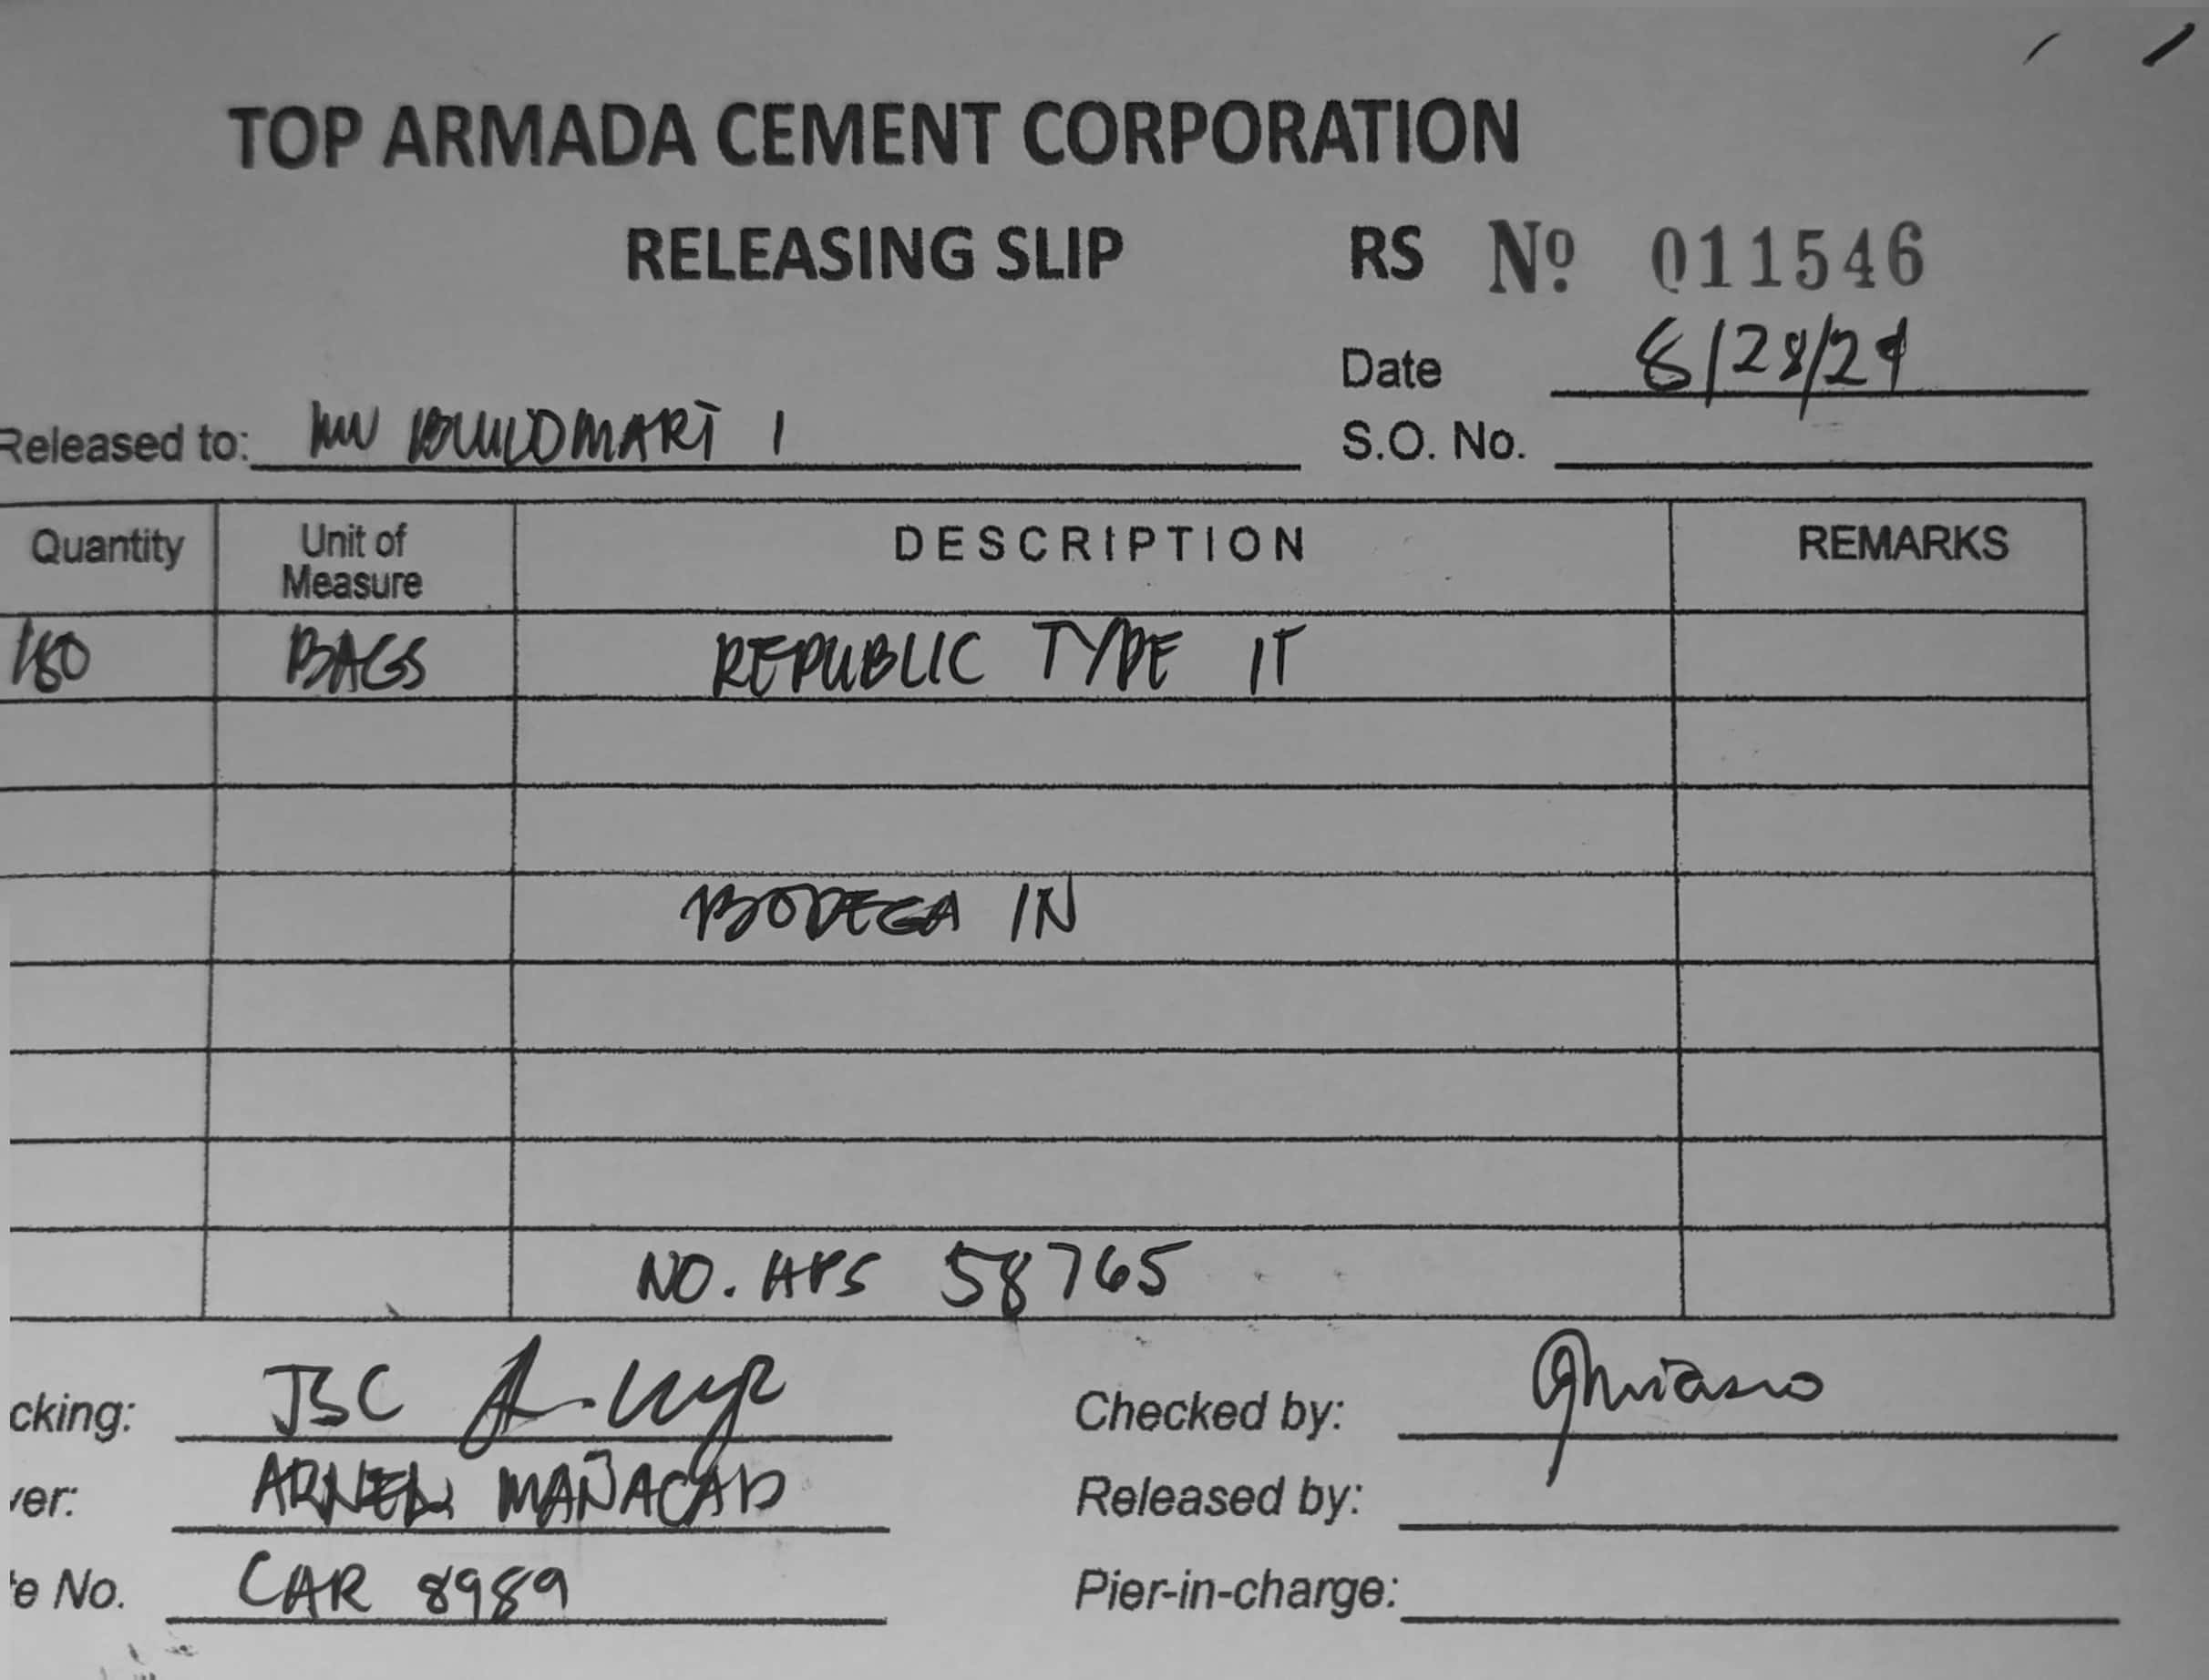 TOP ARMADA CEMENT CORPORATION
RELEASING SLIP RS Nº 011546
Date 8/28/24
Released to: MW BUILDMART 1 S.O. No.
Quantity Unit of Measure DESCRIPTION REMARKS
180 BAGS REPUBLIC TYPE 1T
BODEGA IN
NO. HPS 58765
cking: JBC Checked by:
ver: ARNEL MAÑACAD Released by:
e No. CAR 8989 Pier-in-charge: